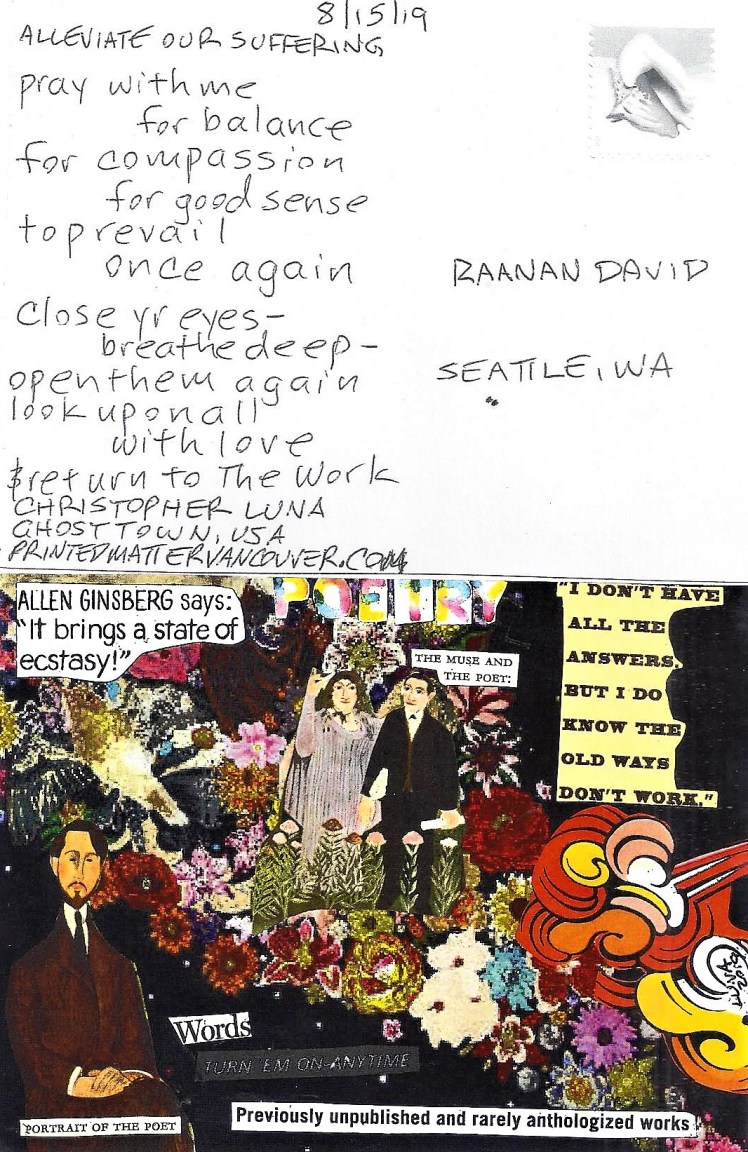 8/15/19
ALLEVIATE OUR SUFFERING
pray with me
for balance
for compassion
for good sense
to prevail
once again
close yr eyes-
breathe deep-
open them again
look upon all
with love
& return to The Work
CHRISTOPHER LUNA
GHOST TOWN, USA
PRINTEDMATTERVANCOUVER.COM
RAANAN DAVID
SEATTLE, WA
ALLEN GINSBERG says:
"It brings a state of
ecstasy!"
POETRY
THE MUSE AND
THE POET:
"I DON'T HAVE
ALL THE
ANSWERS.
BUT I DO
KNOW THE
OLD WAYS
DON'T WORK."
LUNA
2019
Words
TURN 'EM ON ANYTIME
PORTRAIT OF THE POET
Previously unpublished and rarely anthologized works